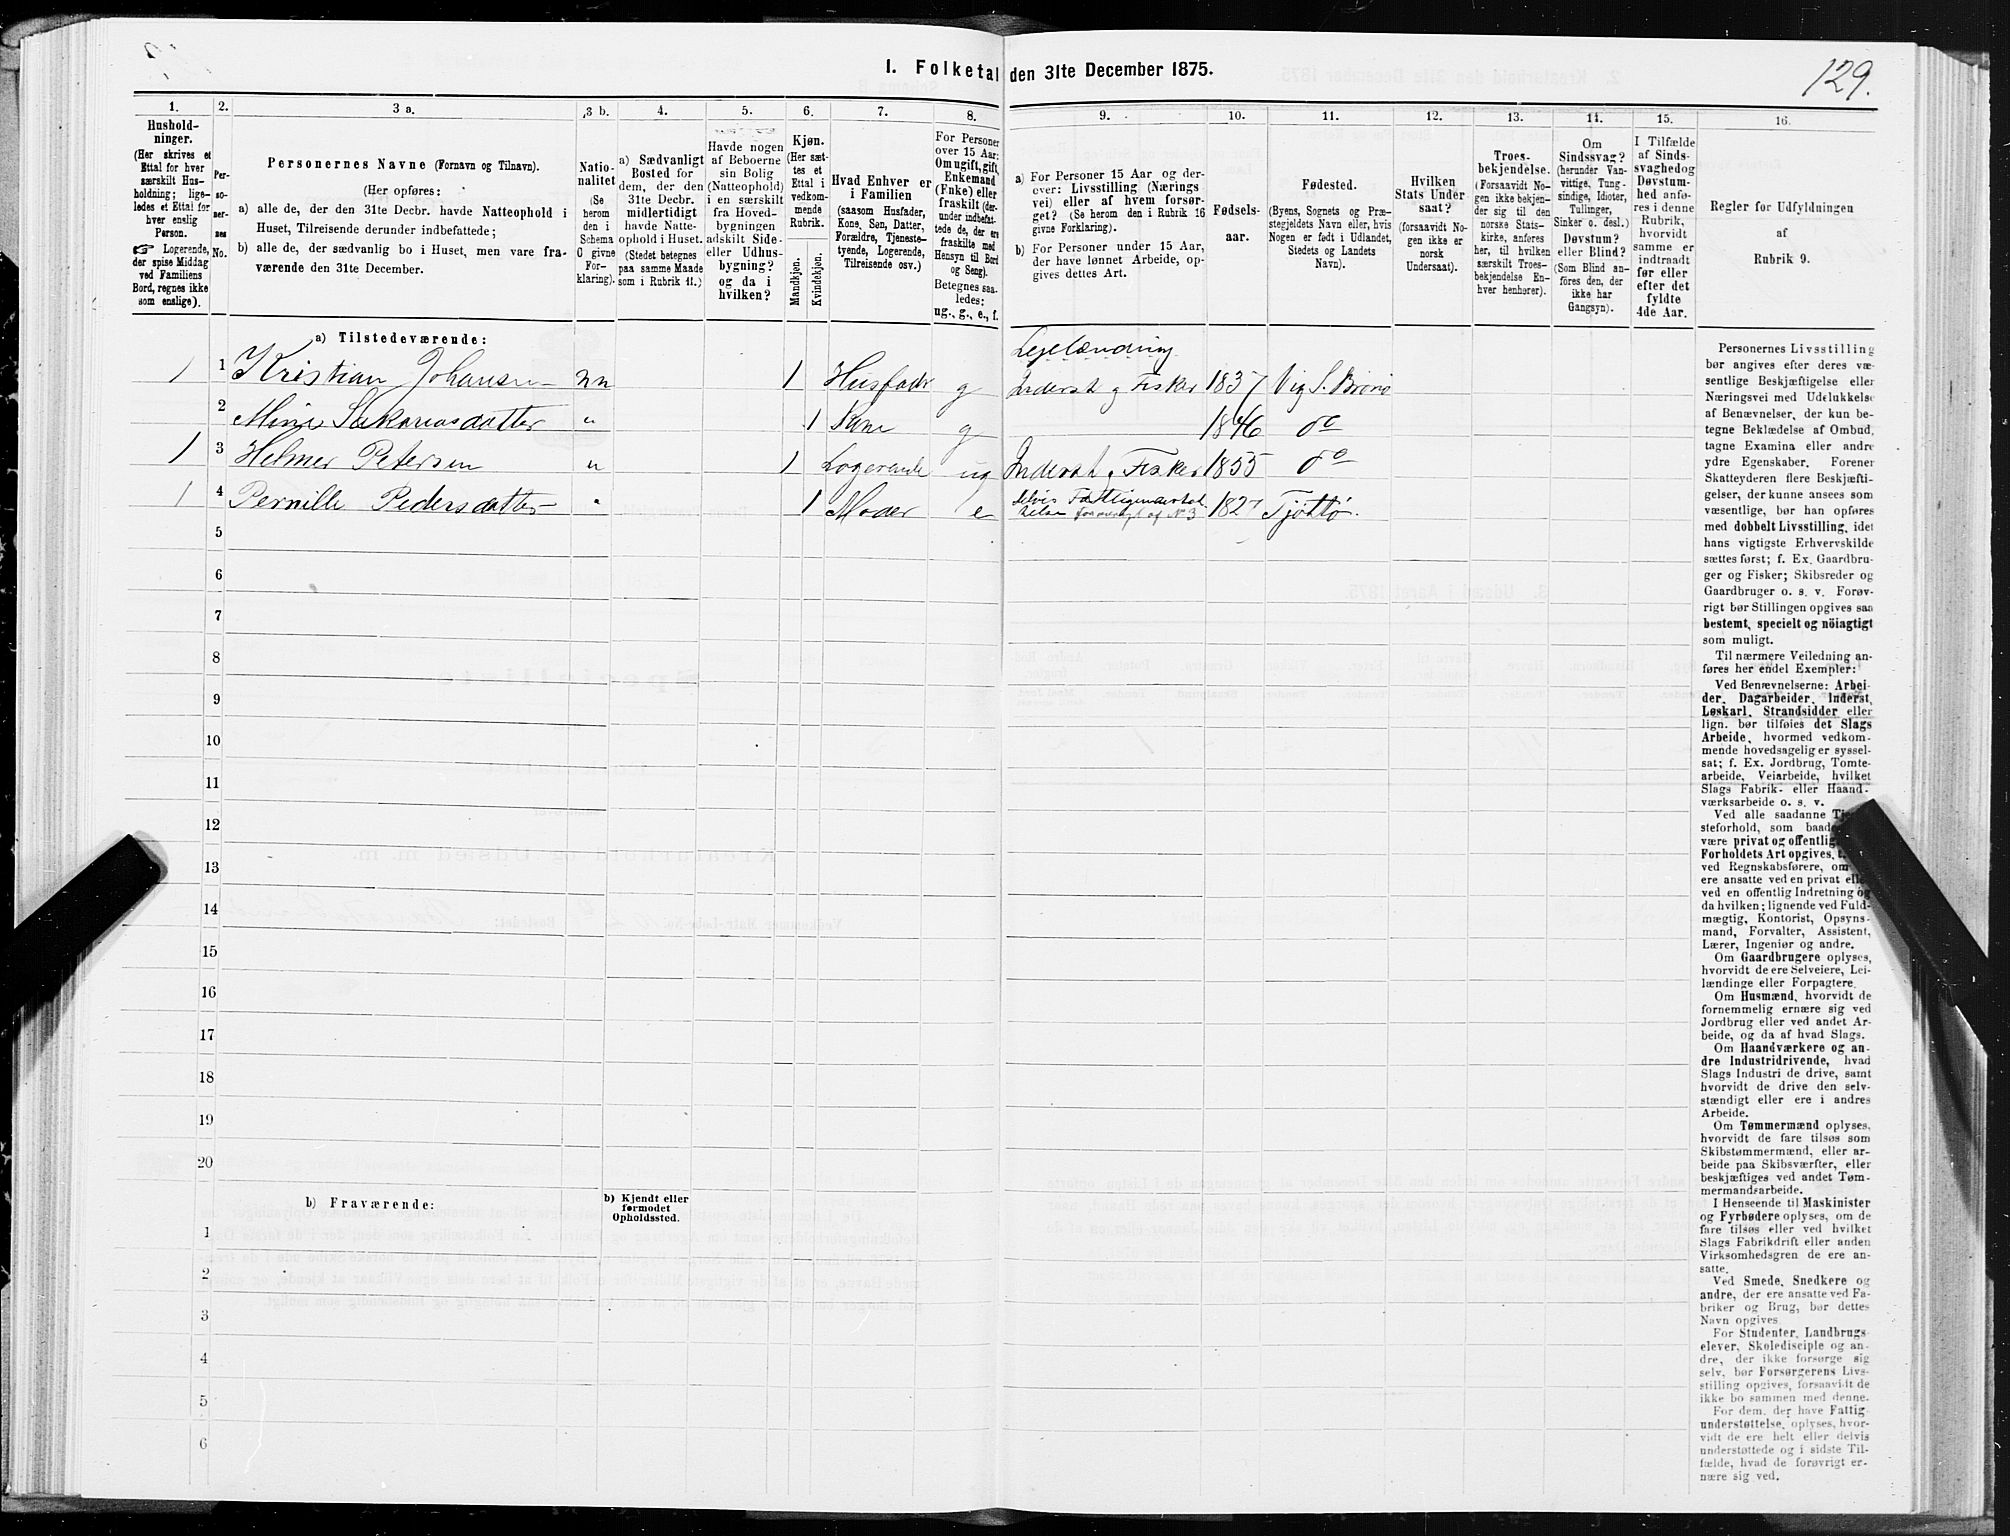 129.
I. Folketal den 31te December 1875.
1. 2. 3 a. 3 b. 4. 5. 6. 7. 8. 9. 10. 11. 12. 13. 14. 15. 16.
Hushold-
ninger.
(Her skrives et
Ettal for hver
særskilt Hus-
holdning; lige-
ledes et Ettal for
hver enslig
Person.
☞ Logerende,
der spise Middag
ved Familiens
Bord, regnes ikke
som enslige).
Per-
so-
ner-
nes
No.
Personernes Navne (Fornavn og Tilnavn).
(Her opføres:
a) alle de, der den 31te Decbr. havde Natteophold i
Huset, Tilreisende derunder indbefattede;
b) alle de, der sædvanlig bo i Huset, men vare fra-
værende den 31te December.
Natio-
nalitet
(Se
herom
den i
Schema
C givne
For-
klaring).
a) Sædvanligt
Bosted for
dem, der den
31te Decbr.
midlertidigt
havde Natte-
ophold i Huset.
(Stedet betegnes
paa samme Maade
som i Rubrik 11.)
Havde nogen
af Beboerne
sin Bolig
(Natteophold)
i en særskilt
fra Hoved-
bygningen
adskilt Side-
eller Udhus-
bygning?
og da i
hvilken?
Kjøn.
(Her sæt-
tes et
Ettal i
vedkom-
mende
Rubrik.
Mandkjøn.
Kvindekjøn.
Hvad Enhver er
i Familien
(saasom Husfader,
Kone, Søn, Datter,
Forældre, Tjeneste-
tyende, Logerende,
Tilreisende osv.)
For Personer
over 15 Aar:
Om ugift, gift,
Enkemand
(Enke) eller
fraskilt (der-
under indbefat-
tede de, der ere
fraskilte med
Hensyn til Bord
og Seng).
Betegnes saa-
ledes:
ug., g., e., f.
a) For Personer 15 Aar og der-
over: Livsstilling (Nærings
vei) eller af hvem forsør-
get? (Se herom den i Rubrik 16
givne Forklaring).
b) For Personer under 15 Aar,
der have lønnet Arbeide, op-
gives dettes Art.
Fødsels-
aar.
Fødested.
(Byens, Sognets og Præ-
stegjeldets Navn eller, hvis
Nogen er født i Udlandet,
Stedets og Landets
Navn).
Hvilken
Stats Under
saat?
(forsaavidt No-
gen ikke er
norsk
Undersaat).
Troes-
bekjendelse.
(Forsaavidt No-
gen ikke bekjen-
der sig til den
norske Stats-
kirke, anføres
her, til hvilken
særskilt Troes-
bekjendelse En-
hver henhører).
Om
Sindssvag?
(herunder Van-
vittige, Tung-
sindige, Idioter,
Tullinger,
Sinker o. desl.)
Døvstum?
eller Blind?
(Som Blind an-
føres den, der
ikke har
Gangsyn).
I Tilfælde
af Sinds-
svaghed og
Døvstum-
hed anfø-
res i denne
Rubrik,
hvorvidt
samme er
indtraadt
før eller
efter det
fyldte
4de Aar.
Regler for Udfyldningen
af
Rubrik 9.
a) Tilstedeværende:
Lejelænding
1 1 Kristian Johansen nn 1 Husfader g Inderst og Fisker 1837 Vig S. Brønø
2 Mine Sakariasdatter " 1 Kone g 1846 do
1 3 Helmer Petersen " 1 Logerende ug Inderst og Fisker 1855 do
1 4 Pernille Pedersdatter " 1 Moder e delvis Fattigunderstøt telse Forøvrigt af No 3 1827 Tjøttø.
5
6
7
8
9
10
11
12
13
14
15
16
17
18
19
20
b) Fraværende:
b) Kjendt eller
formodet
Opholdssted.
1
2
3
4
5
6
Personernes Livsstilling
bør angives efter deres væ-
sentlige Beskjæftigelse eller
Næringsvei med Udelukkelse
af Benævnelser, der kun be-
tegne Beklædelse af Ombud,
tagne Examina eller andre
ydre Egenskaber. Forener
Skatteyderen flere Beskjæfti-
gelser, der kunne ansees som
væsentlige, bør han opføres
med dobbelt Livsstilling, idet
hans vigtigste Erhvervskilde
sættes først; f. Ex. Gaardbru-
ger og Fisker; Skibsreder og
Gaardbruger o. s. v. Forøv-
rigt bør Stillingen opgives saa
bestemt, specielt og nöiagtigt
som muligt.
Til nærmere Veiledning an-
føres her endel Exempler:
Ved Benævnelserne: Arbei-
der, Dagarbeider, Inderst,
Løskarl, Strandsidder eller
lign. bør tilføies det Slags
Arbeide, hvormed vedkom-
mende hovedsagelig er syssel-
sat; f. Ex. Jordbrug, Tomte-
arbeide, Veiarbeide, hvilket
Slags Fabrik- eller Haand-
værksarbeide o. s. v.
Ved alle saadanne
steforhold, som
være privat og offentlig
Forholdets Art opgives,
ved Regnskabsførere, om
ere ansatte ved en privat
ved en offentlig Indretning og
da hvilken; lignende ved Fuld-
mægtig, Kontorist, Opsyns-
mand, Forvalter, Assistent,
Lærer, Ingeniør og andre.
Om Gaardbrugere oplyses,
hvorvidt de ere Selveiere, Lei-
lændinge eller Forpagtere.
Om Husmænd, hvorvidt de
fornemmelig ernære sig ved
Jordbrug eller ved andet Ar-
beide, og da af hvad Slags.
Om Haandværkere og an-
dre Industridrivende, hvad
Slags Industri de drive, samt
hvorvidt de drive den selv-
stændigt eller ere i andres
Arbeide.
Om Tømmermænd oplyses,
hvorvidt de fare tilsøs som
Skibstømmermænd, eller ar-
beide paa Skibsværfter, eller
beskjæftiges ved andet Tøm-
mermandsarbeide.
I Henseende til Maskinister
og Fyrbødere oplyses, om de
fare tilsøs eller ved hvilket
Slags Fabrikdrift eller anden
Virksomhedsgren de ere an-
satte.
Ved Smede, Snedkere og
andre, der ere ansatte ved Fa-
briker og Brug, bør dettes
Navn opgives.
For Studenter, Landbrugs
elever, Skoledisciple og an-
dre, der ikke forsørge sig
selv, bør Forsørgerens Livs-
stilling opgives, forsaavidt de
ikke bo sammen med denne.
For dem, der have Fattig-
understøttelse, oplyses, hvor-
vidt de ere helt eller delvis
understøttede og i sidste Til-
fælde, hvad de forøvrigt er-
nære sig ved.